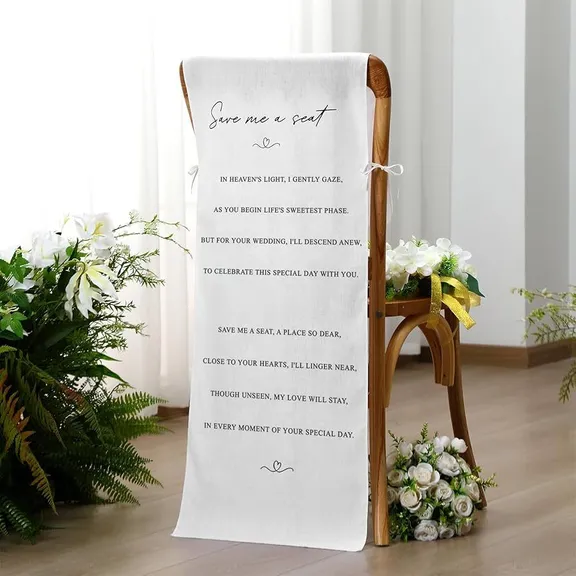 Save me a seat
IN HEAVEN'S LIGHT, I GENTLY GAZE,
AS YOU BEGIN LIFE'S SWEETEST PHASE.
BUT FOR YOUR WEDDING, I'LL DESCEND ANEW,
TO CELEBRATE THIS SPECIAL DAY WITH YOU.
SAVE ME A SEAT, A PLACE SO DEAR,
CLOSE TO YOUR HEARTS, I'LL LINGER NEAR,
THOUGH UNSEEN, MY LOVE WILL STAY,
IN EVERY MOMENT OF YOUR SPECIAL DAY.